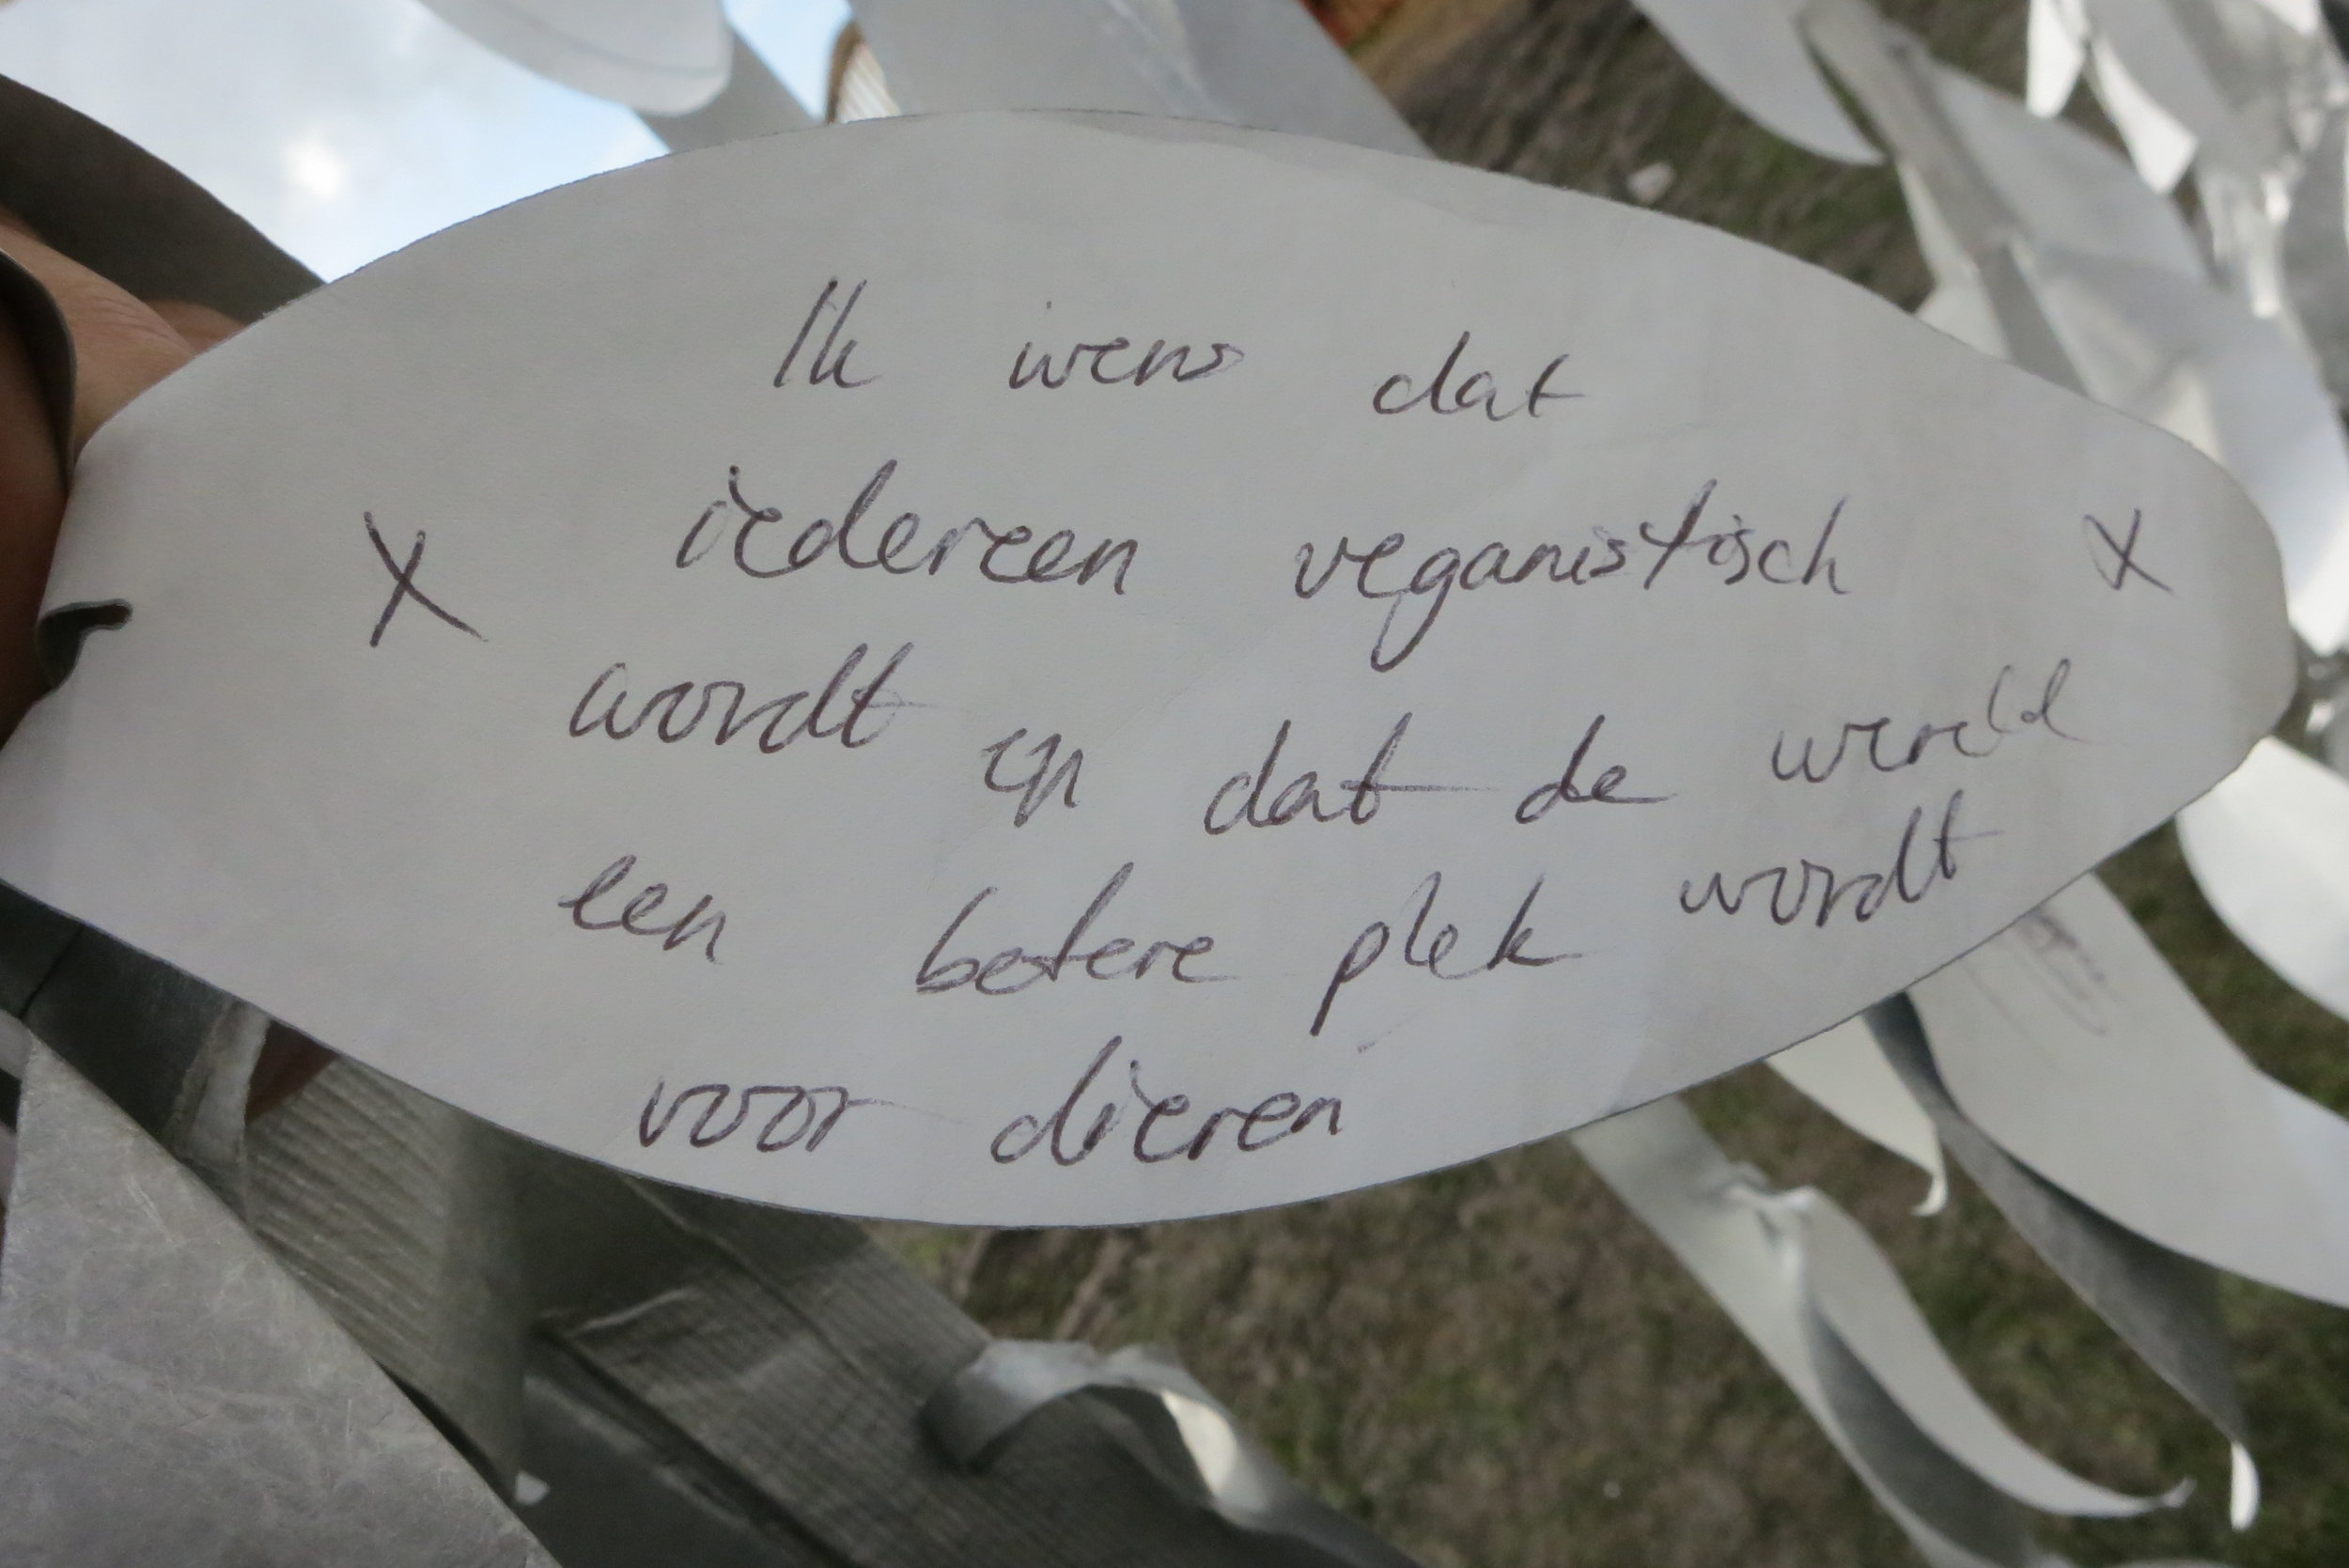 Ik wens dat
X iedereen veganistisch X
wordt en dat de wereld
een betere plek wordt
voor dieren